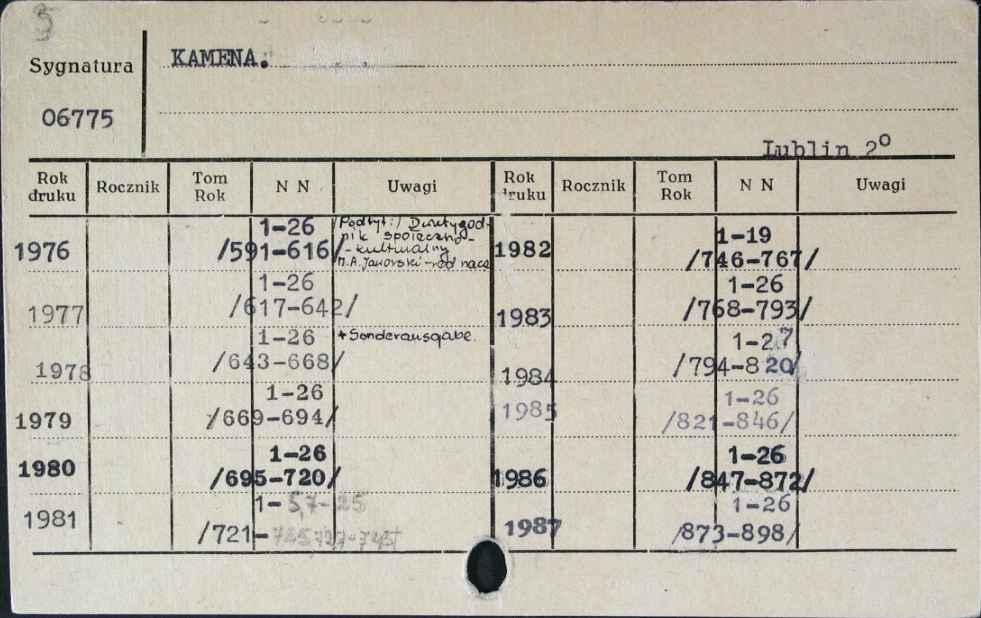 5
Sygnatura KAMENA.
06775
Lublin 2°
Rok druku Rocznik Tom Rok N N Uwagi Rok druku Rocznik Tom Rok N N Uwagi
1976 1-26 /591-616/ /Podtyt:/ Dwutygod-
nik społeczno-
-kulturalny
M.A.Jaworski-red nacz
1977 1-26 /617-642/
1978 1-26 /643-668/ +Sonderausgabe.
1979 1-26 /669-694/
1980 1-26 /695-720/
1981 1-5,7-25 /721-725,727-745/
1982 1-19 /746-767/
1983 1-26 /768-793/
1984 1-27 /794-820/
1985 1-26 /821-846/
1986 1-26 /847-872/
1987 1-26 /873-898/